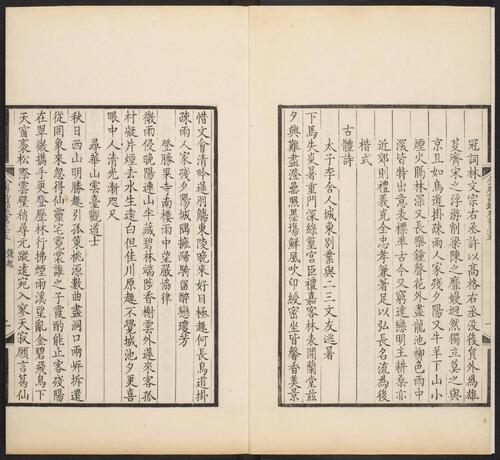 冠詞林文宗右丞許以髙格右丞没後員外為雄
芟齊宋之浮游削梁陳之靡嫚迥然獨立莫之與
京且如鳥道掛疎雨人家殘夕陽又牛羊下山小
煙火隔林深又長樂鐘聲花外盡龍池柳色雨中
深皆特出意表標準古今又窮達戀明主耕桑亦
近郊則禮義克全忠孝兼著足以弘長名流為後
楷式
古體詩
太子李舍人城東別業與二三文友逃暑
下馬失炎暑重門深綠篁宫臣禮嘉客林表開蘭堂兹
夕興難盡澄罍照墨塲鮮風吹印綬密坐皆馨香美景
惜文會清吟遲羽觴東陵晚來好目極趣何長鳥道掛
疎雨人家殘夕陽城隅擁歸騎留醉戀瓊芳
登勝果寺南樓雨中望嚴協律
微雨侵晚陽連山半藏碧林端陟香榭雲外遲來客孤
村凝片煙去水生遠白但佳川原趣不覺城池夕更喜
眼中人清光漸咫尺
尋華山雲臺觀道士
秋日西山明勝趣引孤策桃源數曲盡洞口兩岸坼還
從罔象來忽得仙靈宅霓裳誰之子霞酌能止客殘陽
在翠微攜手更登歷林行拂煙雨溪望亂金碧飛鳥下
天窗裊松際雲壁稍尋元蹤遠宛入寥天寂願言葛仙